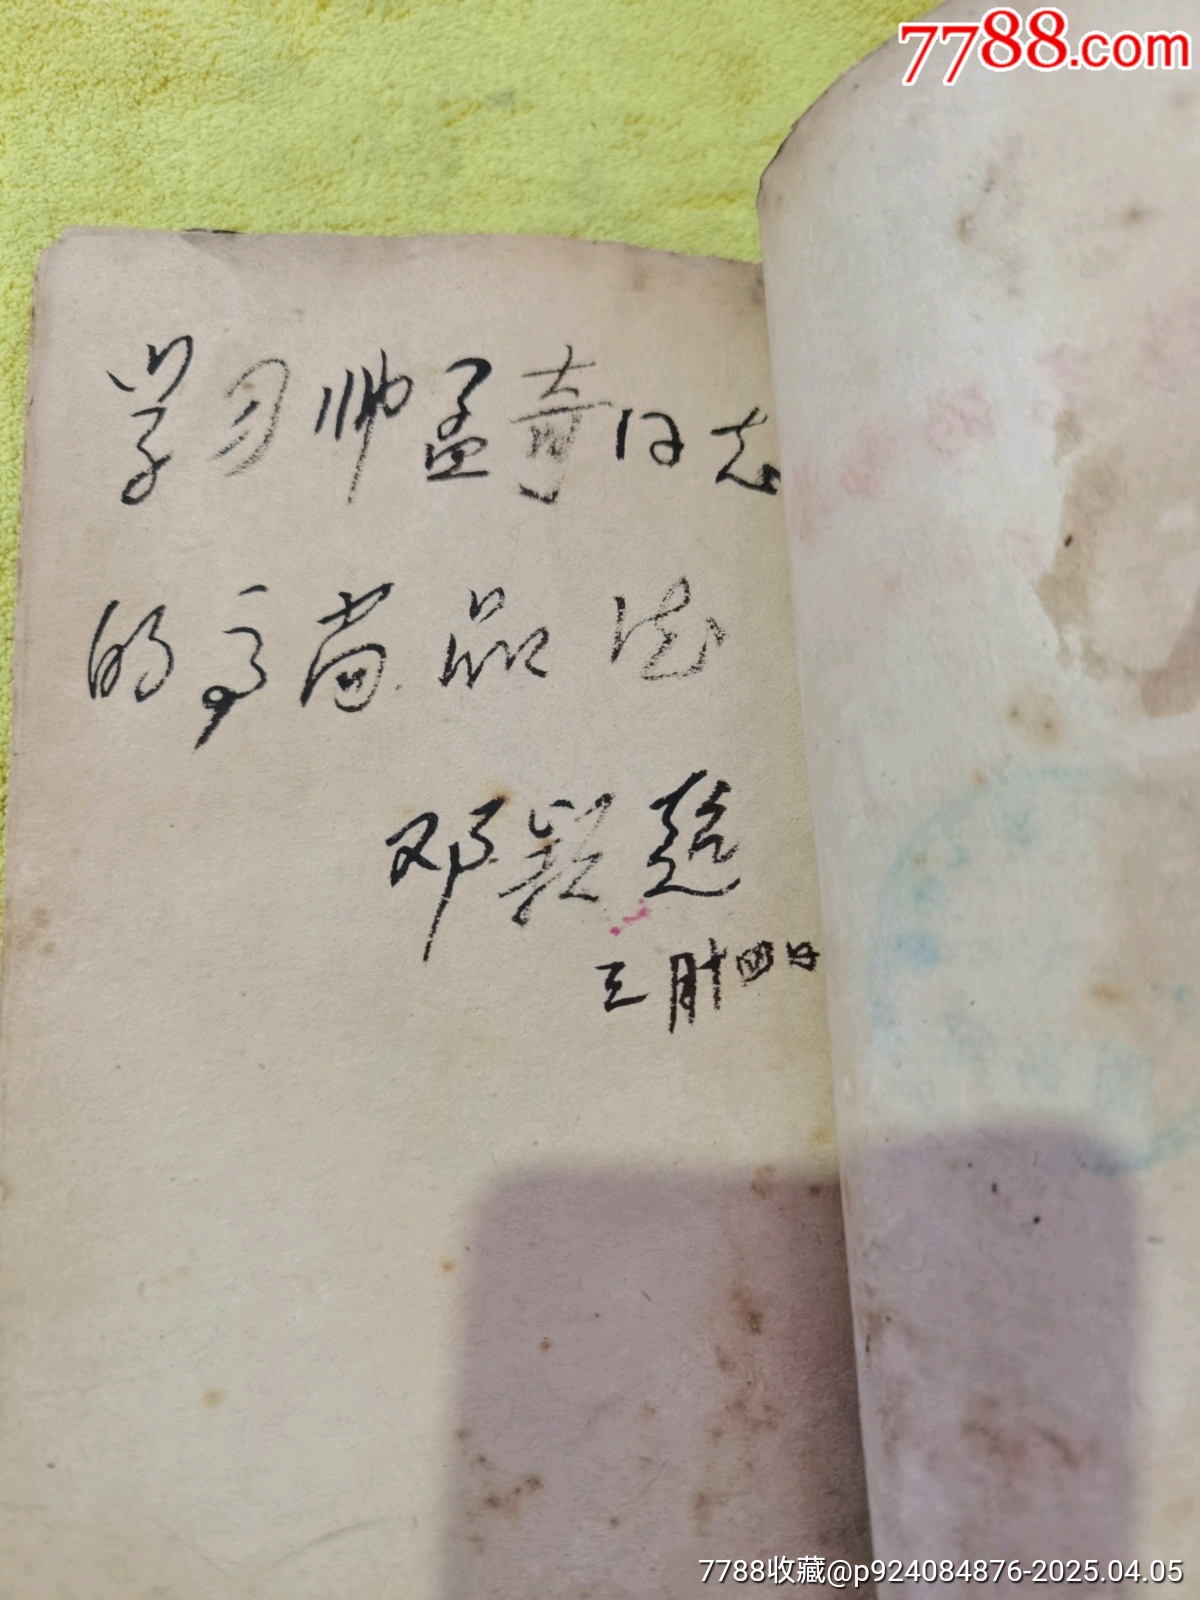 7788.com
学习帅孟奇同志
的高尚品德
邓颖超
三月十四日
7788收藏@p924084876-2025.04.05